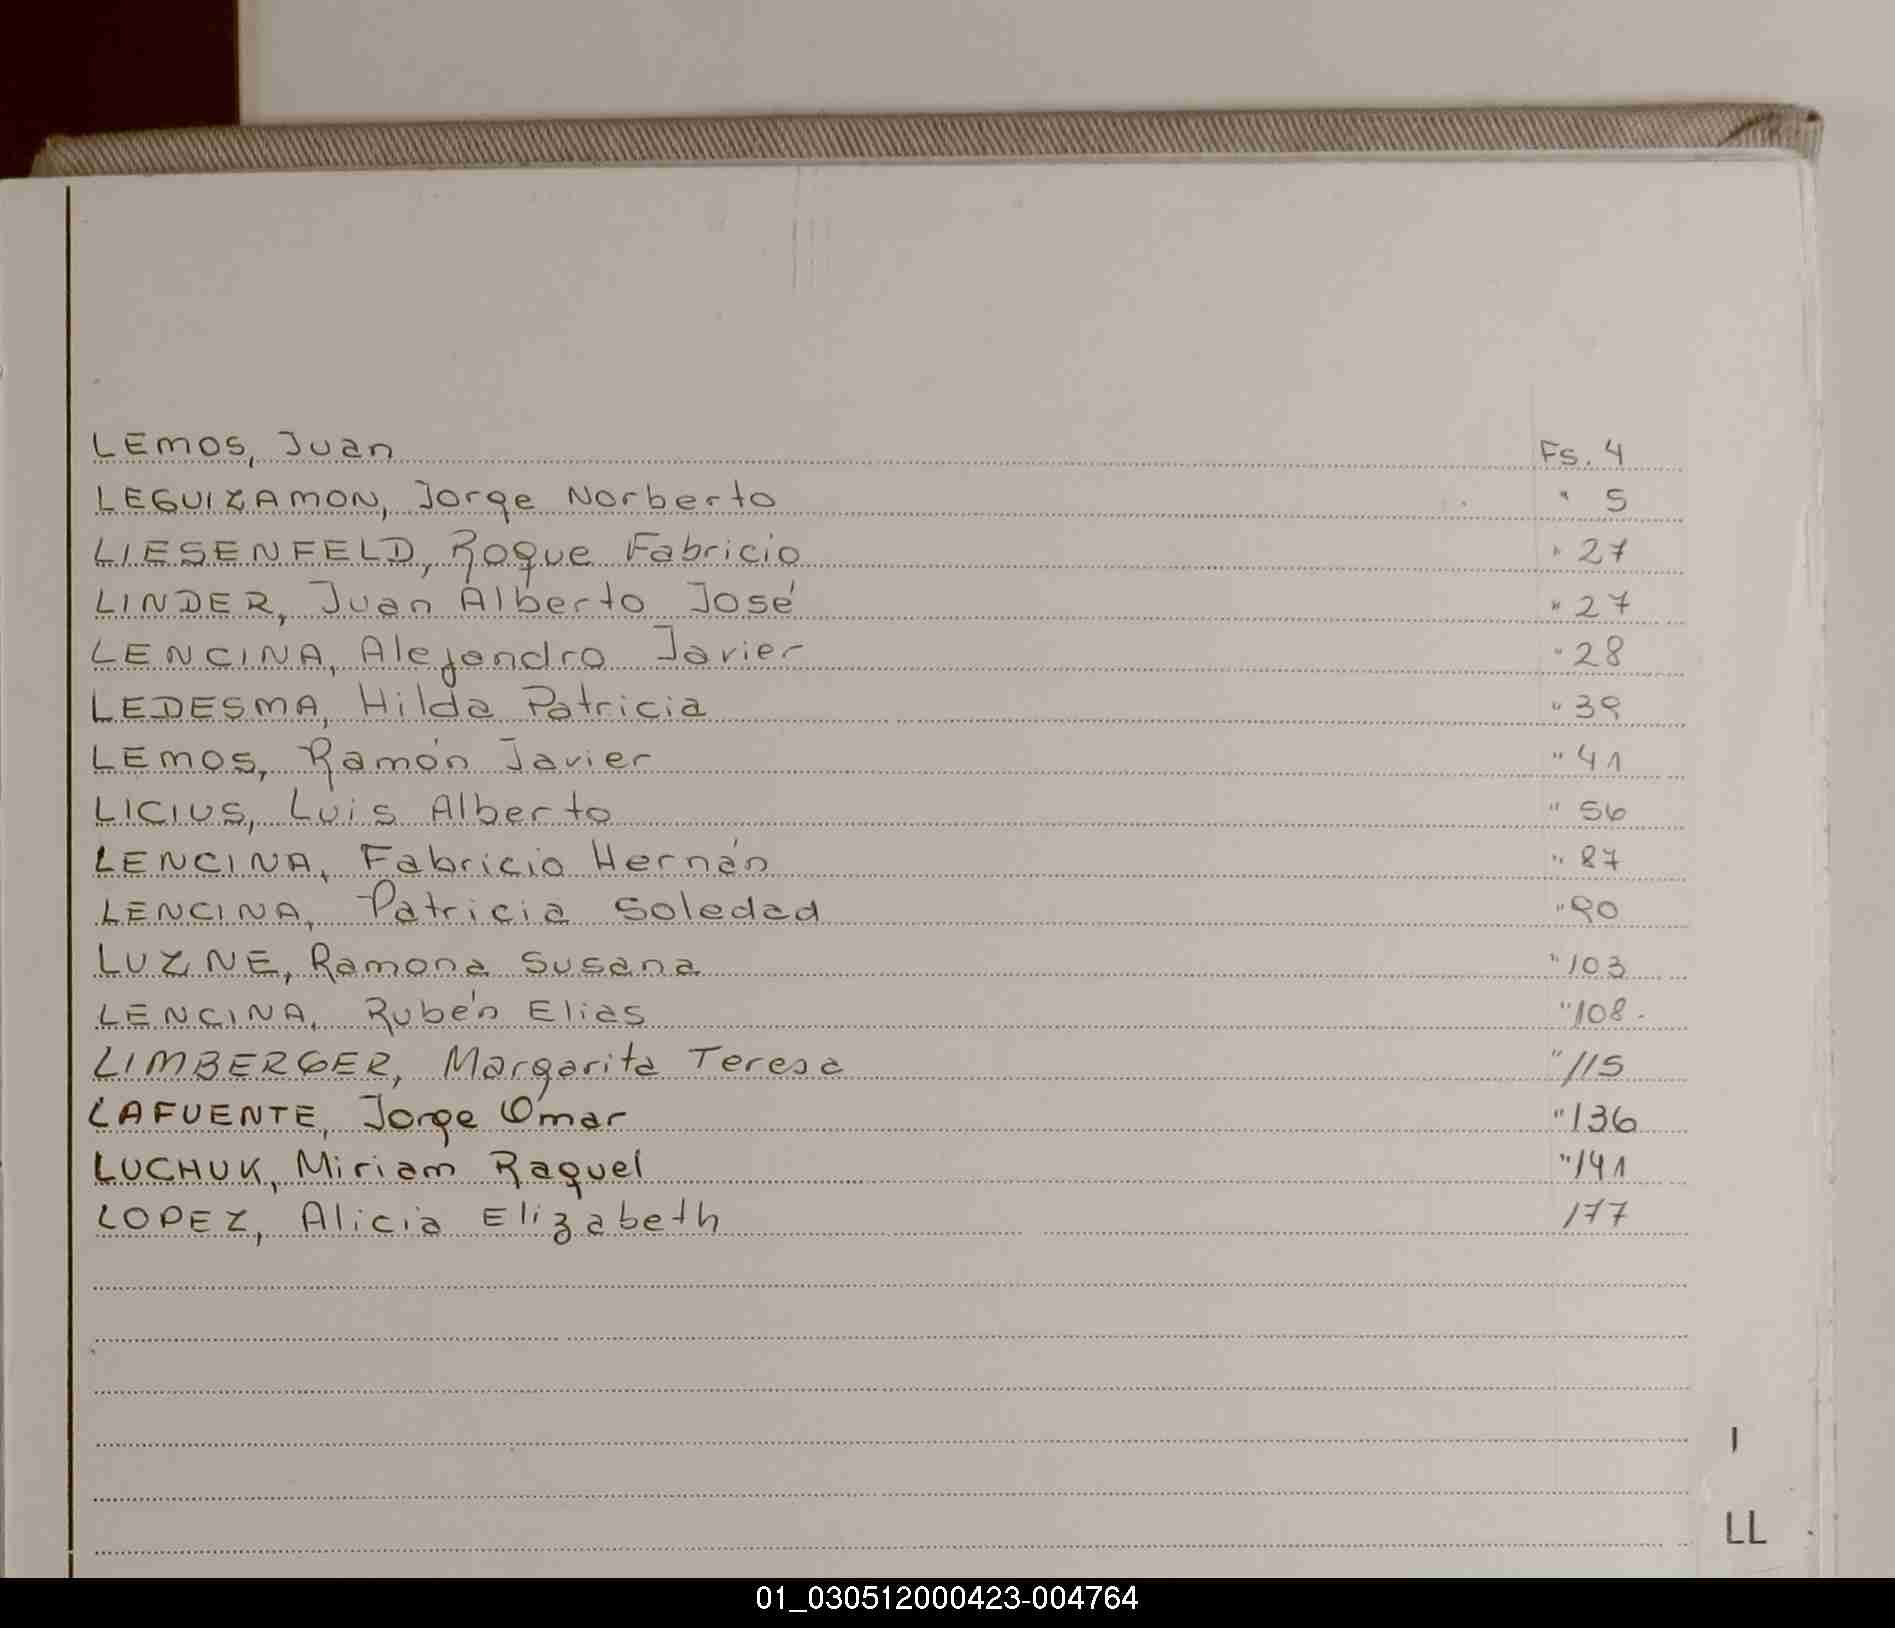 LEMOS, Juan Fs. 4
LEGUIZAMON, Jorge Norberto " 5
LIESENFELD, Roque Fabricio " 27
LINDER, Juan Alberto José " 27
LENCINA, Alejandro Javier " 28
LEDESMA, Hilda Patricia " 39
LEMOS, Ramón Javier " 41
LICIUS, Luis Alberto " 56
LENCINA, Fabricio Hernán " 87
LENCINA, Patricia Soledad " 90
LUZNE, Ramona Susana " 103
LENCINA, Rubén Elias " 108.
LIMBERGER, Margarita Teresa " 115
LAFUENTE, Jorge Omar " 136
LUCHUK, Miriam Raquel " 141
LOPEZ, Alicia Elizabeth 177
I
LL
01_030512000423-004764